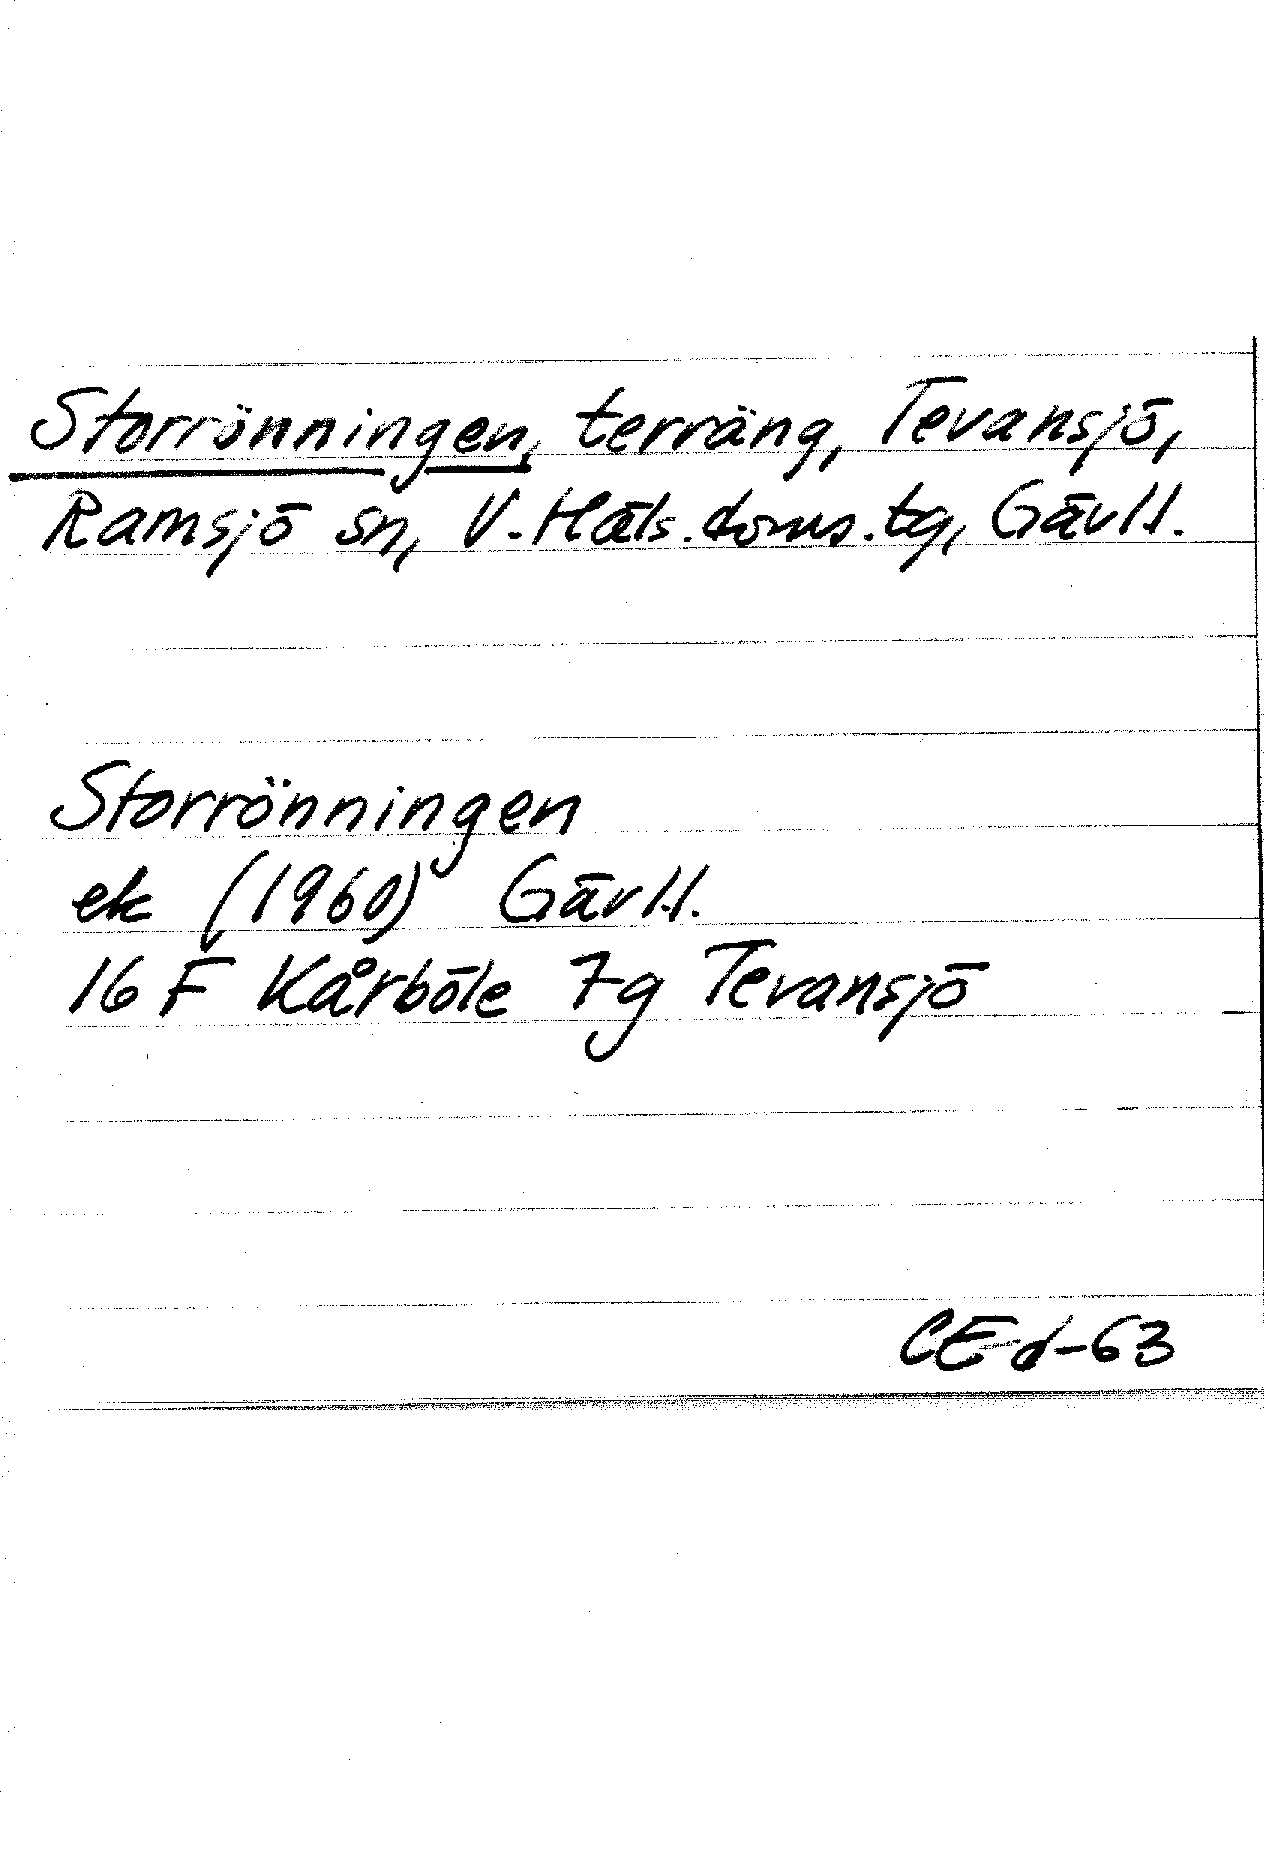 Storrönningen, terräng, Tevansjö,
Ramsjö sn, V. Häls. doms. tg, Gävl.l.
Storrönningen
ek (1960) Gävl.l.
16 F Kårböle 7g Tevansjö
CEd-63